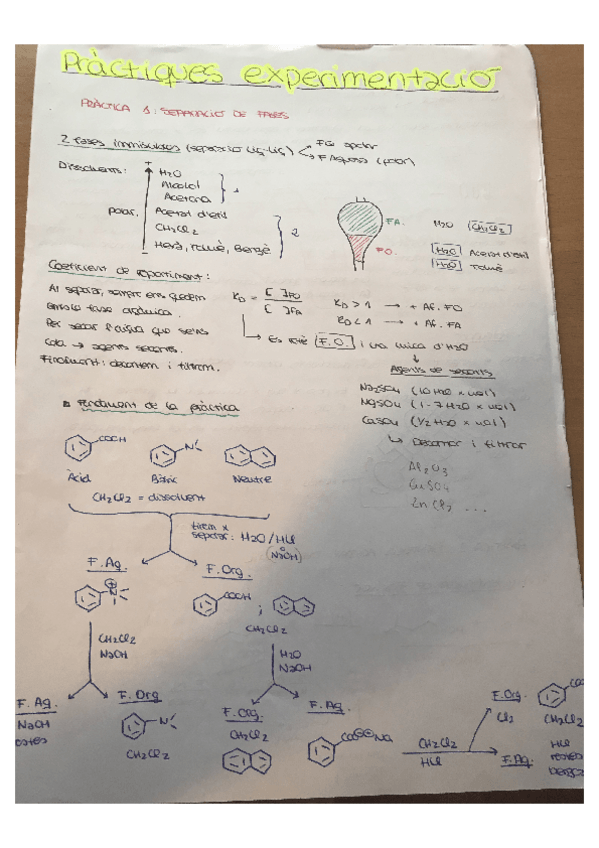 Pràctiques experimentació
PRÀCTICA 1: SEPARACIÓ DE FASES
2 fases immiscibles (separació líq-líq)
FO apolar
F Aquosa (polar)
Dissolvents:
+
H2O
Alcohol
Acetona
1
polar.
Acetat d'etil
CH2Cl2
Hexà, toluè, Benzè
2
-
FA.
FO.
H2O
CH2Cl2
H2O Acetat d'etil
H2O Toluè
Coeficient de repartiment:
Al separar, sempre ens quedem
amb la fase orgànica.
Per secar l'aigua que sens
cola → agents secants.
Finalment: decantem i filtrem.
KD = [ ]FO / [ ]FA
KD > 1 → + Af. FO
KD < 1 → + Af. FA
Es reté F.O. i una mica d'H2O
Agents de secants
Na2SO4 (10 H2O x mol)
MgSO4 (1-7 H2O x mol)
CaSO4 (1/2 H2O x mol)
↳ Decantar i filtrar
Al2O3
CuSO4
ZnCl2 ...
Fonament de la pràctica
COOH
N
Àcid
Bàsic
Neutre
CH2Cl2 = dissolvent
tirem x
separar: H2O/HCl
(NaOH)
F. Aq.
F. Org.
N
COOH
;
CH2Cl2
CH2Cl2
NaOH
H2O
NaOH
F. Aq.
NaOH
F. Org
N
CH2Cl2
F. Org.
CH2Cl2
F. Aq.
COO Na
CH2Cl2
HCl
F. Org.
Cl2
CH2Cl2
F. Aq.
HCl